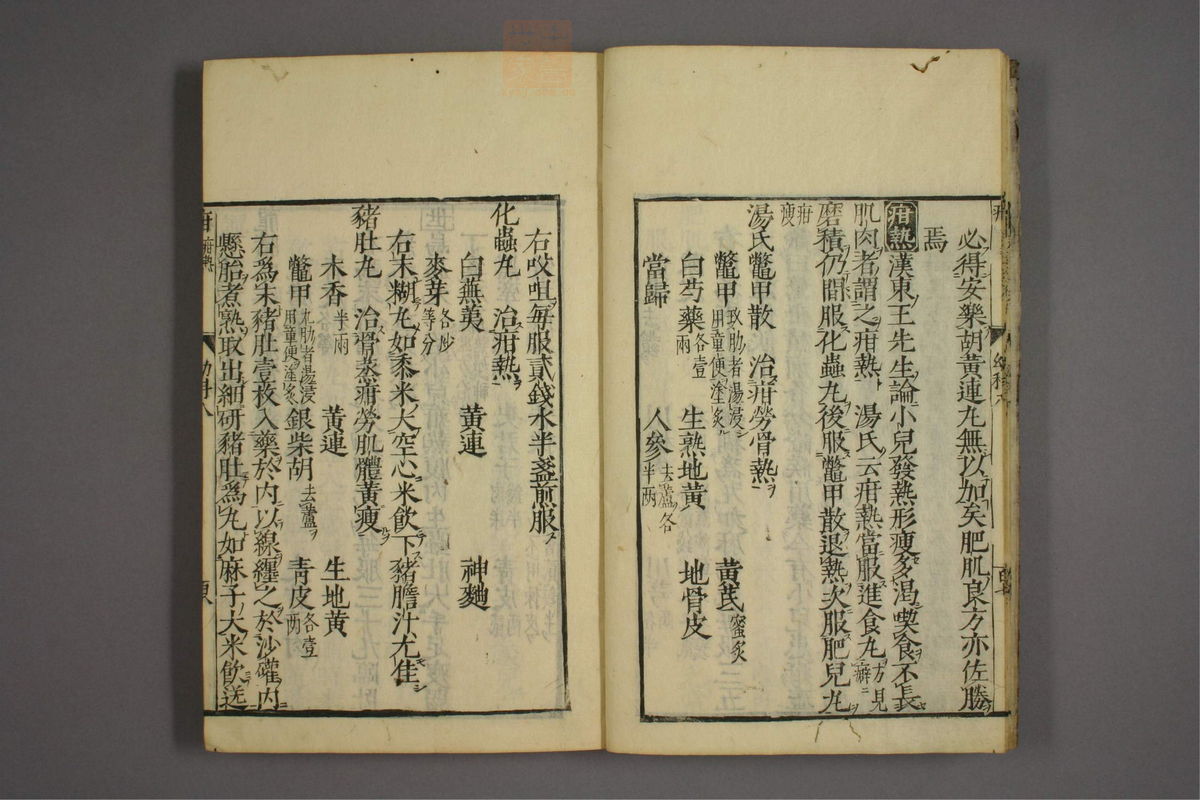 必得安樂胡黃連丸無以加矣肥肌良方亦佐勝
焉
疳熱 漢東王先生論小兒發熱形瘦多渴喫食不長
肌肉者謂之疳熱 湯氏云疳熱當服進食丸方見癖
磨積仍間服化蟲丸後服鼈甲散退熱次服肥兒丸
疳瘦
湯氏鼈甲散 治疳勞骨熱
鼈甲 肋者湯浸用童便塗炙 黃芪 蜜炙
白芍藥 各壹兩 生熟地黃 地骨皮
當歸 人參 去蘆各半兩
右㕮咀每服貳錢水半盞煎服
化蟲丸 治疳熱
白蕪荑 黃連 神麯
麥芽 各炒等分
右末糊丸如黍米大空心米飲下豬膽汁尤佳
豬肚丸 治骨蒸疳勞肌體黃瘦
木香 半兩 黃連 生地黃
鼈甲 九肋者湯浸用童便塗炙 銀柴胡 去蘆 青皮 各壹兩
右爲末豬肚壹枚入藥於內以線纏之於沙罐內
懸胎煮熟取出細研豬肚爲丸如麻子大米飲送